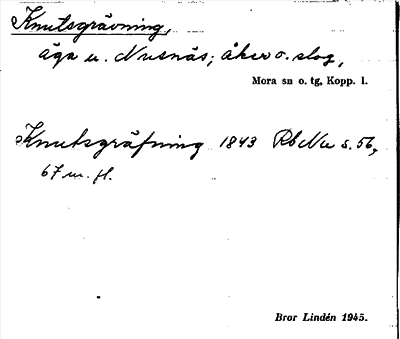 Knutsgrävning,
äga u. Nusnäs; åker o. slog,
Mora sn o. tg, Kopp. l.
Knutsgräfning 1843 Rb Nu s. 56,
67 m. fl.
Bror Lindén 1945.